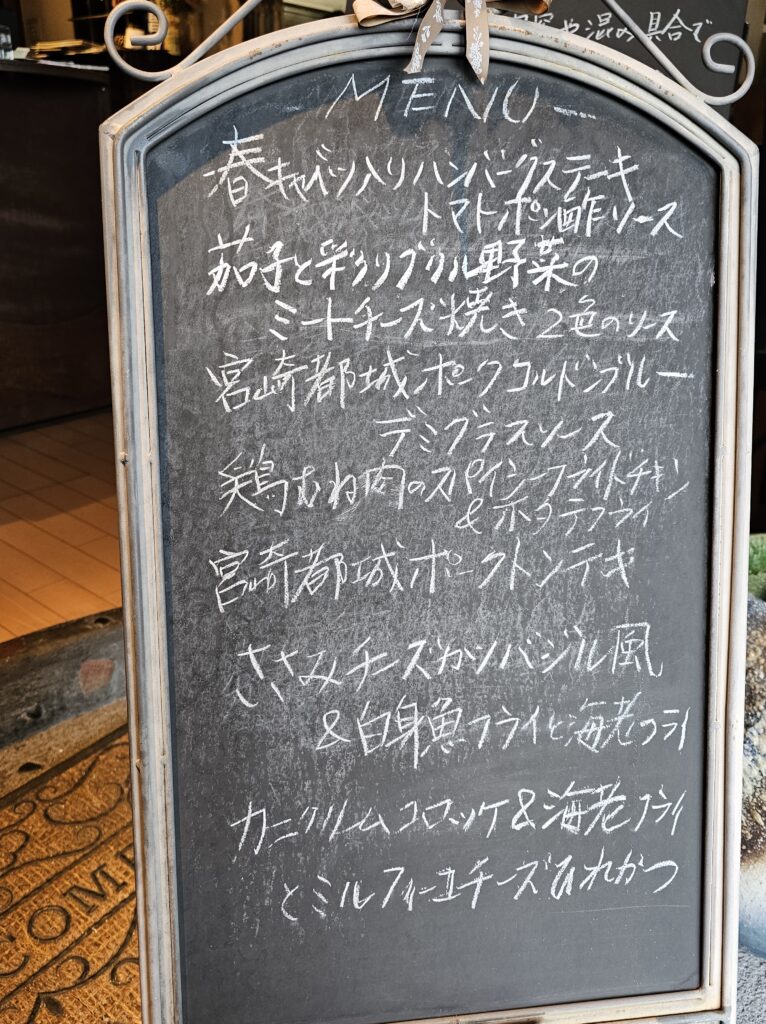 や混み具合で
MENU
春キャベツ入りハンバーグステーキ
トマトポン酢ソース
茄子と彩りグリル野菜の
ミートチーズ焼き 2色のソース
宮崎都城ポークコルドンブルー
デミグラスソース
鶏むね肉のスパイシーフライドチキン
&ホタテフライ
宮崎都城ポークトンテキ
ささみチーズカツバジル風
&白身魚フライと海老フライ
カニクリームコロッケ&海老フライ
とミルフィーユチーズひれかつ
COME